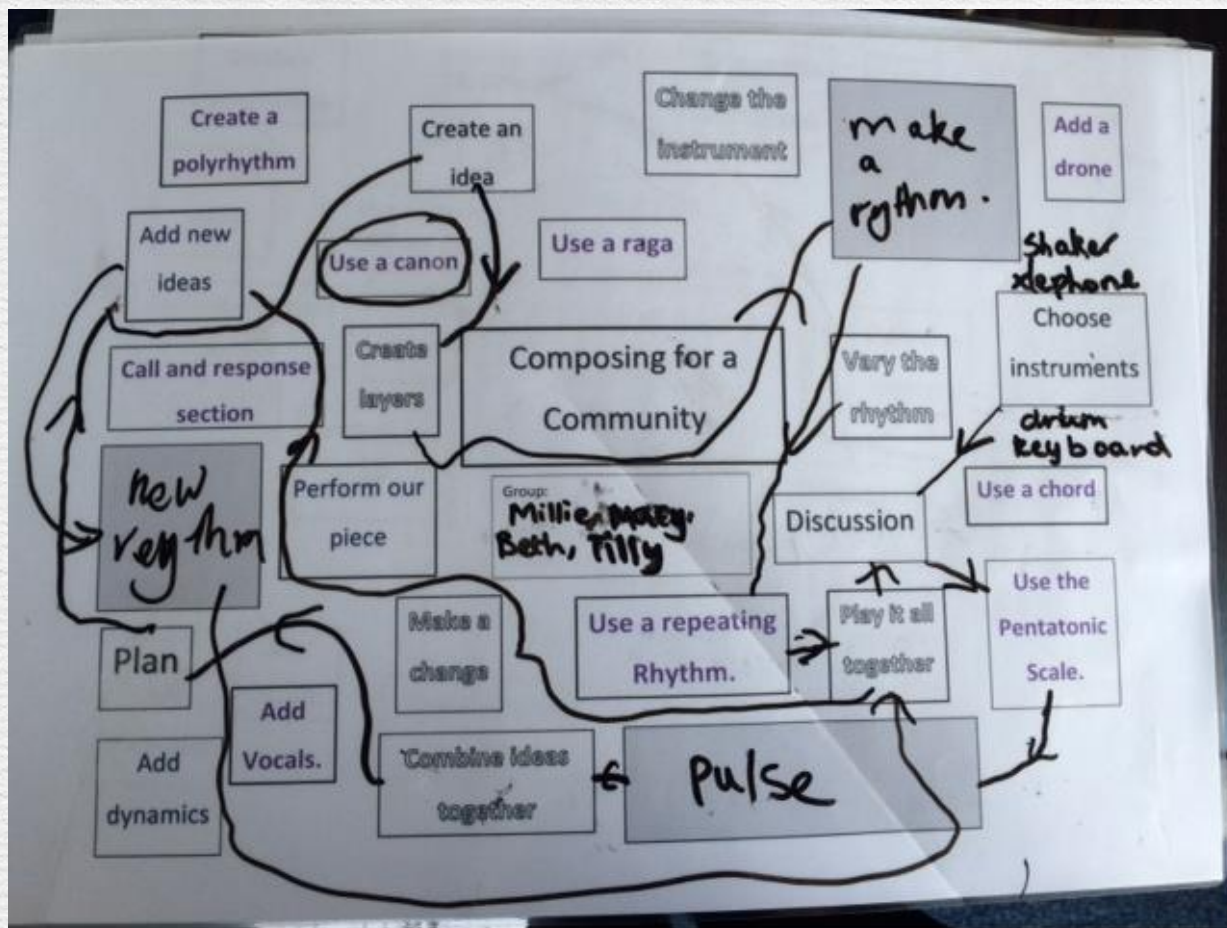 Create a
polyrhythm
Create an
idea
Change the
instrument
make
a
rythm.
Add a
drone
Add new
ideas
Use a canon
Use a raga
shaker
Choose
instruments
drum
keyboard
Call and response
section
Create
layers
Composing for a
Community
Vary the
rhythm
new
reythm
Perform our
piece
Group:
Millie,
Beth, Tilly
Discussion
Use a chord
Plan
Make a
change
Use a repeating
Rhythm.
Play it all
together
Use the
Pentatonic
Scale.
Add
Vocals.
Add
dynamics
Combine ideas
together
pulse